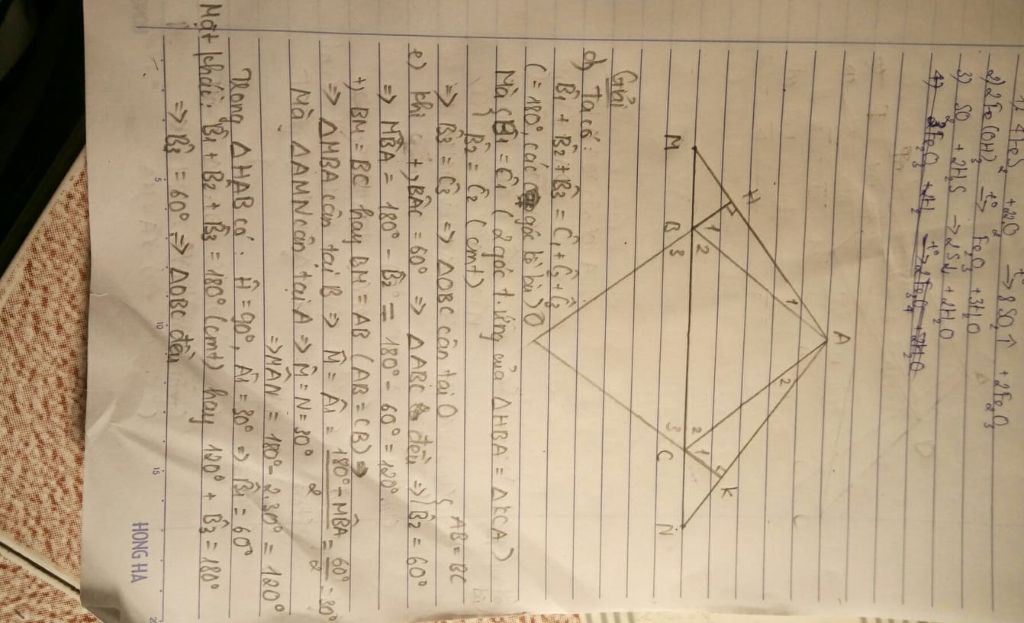 1) 4FeS₂ + 11O₂ t° → 8SO₂ ↑ + 2Fe₂O₃
2) 2Fe(OH)₃ t° → Fe₂O₃ + 3H₂O
3) SO₂ + 2H₂S → 3S↓ + 2H₂O
4) 3Fe₂O₃ + H₂ t° → 2Fe₃O₄ + H₂O
A
1 2
H K
M B C N
1 2 3
2 1 3
O
Giải
d) Ta có:
B̂1 + B̂2 + B̂3 = Ĉ1 + Ĉ2 + Ĉ3
(= 180°, các góc kề bù)
Mà B̂1 = Ĉ1 (2 góc t.ứng của ΔHBA = ΔKCA)
B̂2 = Ĉ2 (cmt)
=> B̂3 = Ĉ3 => ΔOBC cân tại O
e) Khi +, BÂC = 60° => ΔABC đều => { AB = BC
B̂2 = 60°
=> MB̂A = 180° - B̂2 = 180° - 60° = 120°
+, BM = BC hay BM = AB (AB = CB) =>
=> ΔMBA cân tại B => M̂ = Â1 = 180° - MB̂A / 2 = 60° / 2 = 30°
Mà ΔAMN cân tại A => M̂ = N̂ = 30°
=> MÂN = 180° - 2.30° = 120°
Trong ΔHAB có: Ĥ = 90°, Â1 = 30° => B̂1 = 60°
Mặt khác: B̂1 + B̂2 + B̂3 = 180° (cmt) hay 120° + B̂3 = 180°
=> B̂3 = 60° => ΔOBC đều
5 10 15
HONG HA